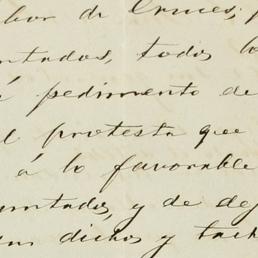 bor de Cruces;
ntados, todos lo
á pedimento de
l protesta que
á lo favorable
untados, y de dej
us dichos y tach